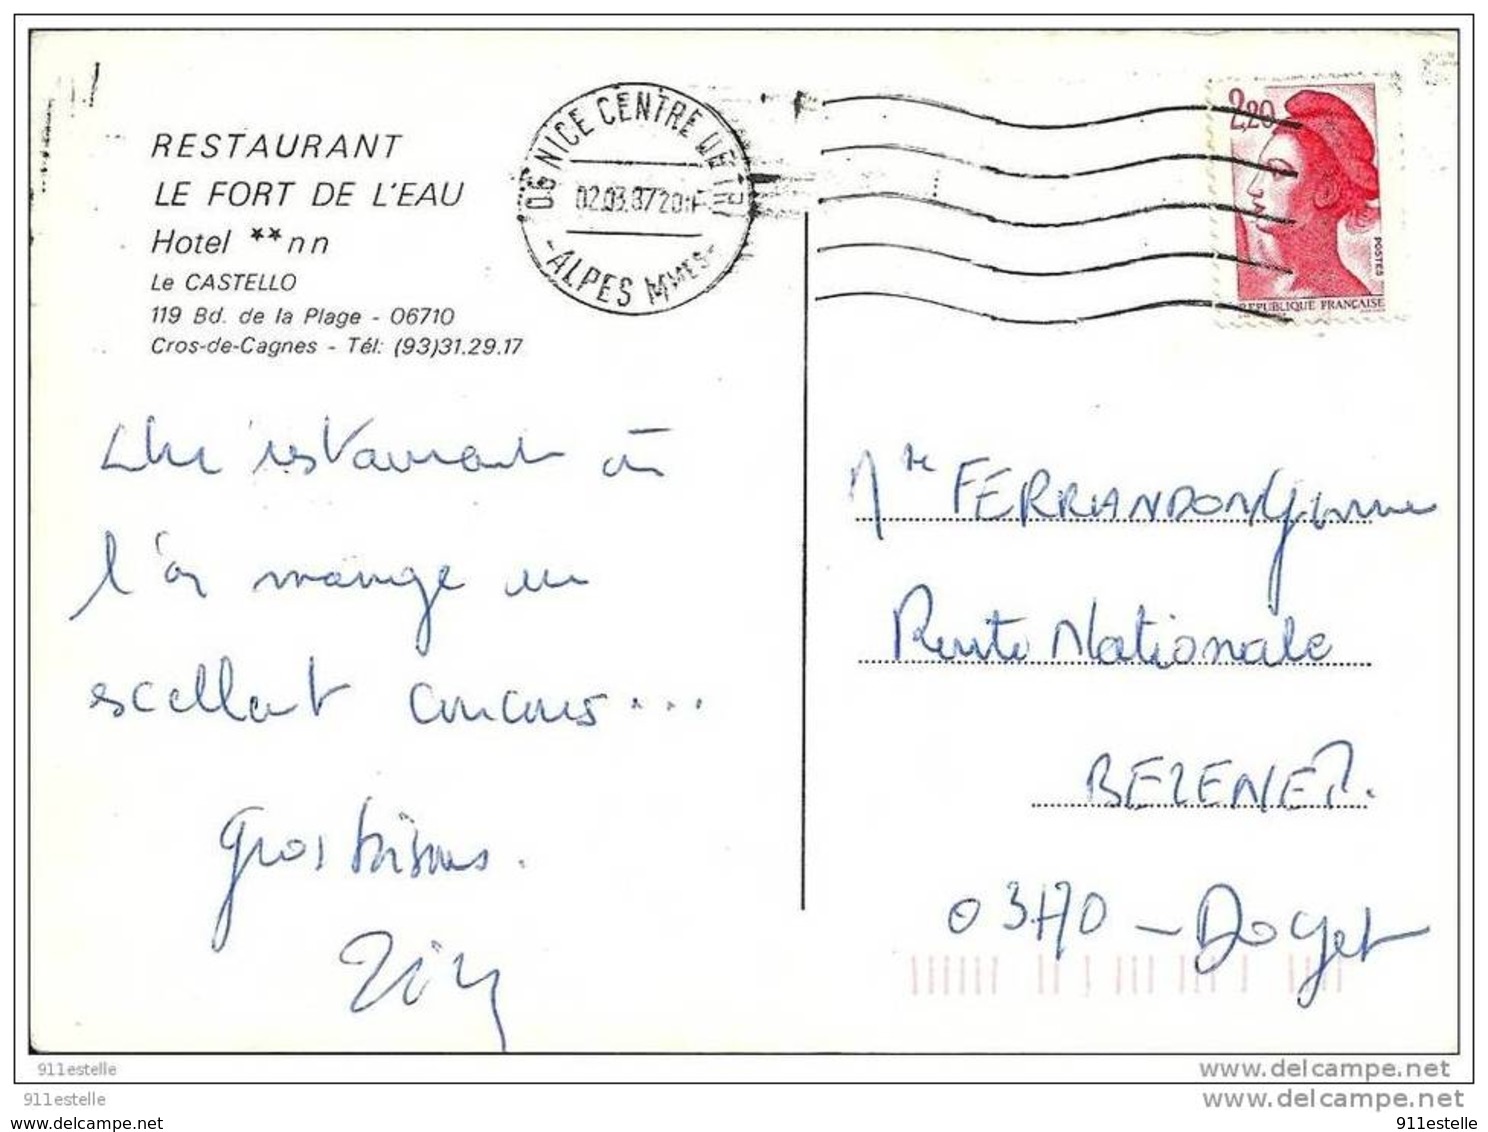 RESTAURANT
LE FORT DE L'EAU
Hotel **nn
Le CASTELLO
119 Bd. de la Plage - 06710
Cros-de-Cagnes - Tél: (93)31.29.17
06 NICE CENTRE
02.03.87 20H
-ALPES MMES-
2,20
POSTES
REPUBLIQUE FRANÇAISE
Un restaurant où
l'on mange un
excellent couscous...
Gros bisous.
FERRIANDON
Route Nationale
BEZENET.
03170 - Doyet
911estelle
www.delcampe.net
911estelle
www.delcampe.net
www.delcampe.net
911estelle